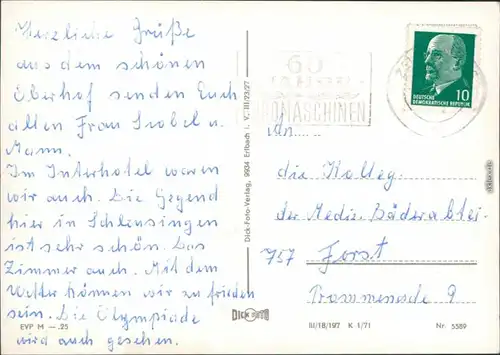 Herzliche Grüße
aus dem schönen
Oberhof senden Euch
allen Frau Isobel u.
Mann.
Im Interhotel waren
wir auch. Die Gegend
hier in Schleusingen
ist sehr schön. Das
Zimmer auch. Mit dem
Wetter können wir zu frieden
sein. Die Olympiade
wird auch gesehen.
EVP M —.25
Dick-Foto-Verlag, 9934 Erlbach i. V. III/23/27
DICK FOTO
60
BÜROMASCHINEN
10
DEUTSCHE
DEMOKRATISCHE REPUBLIK
An
die Kolleg.
der Mediz. Bäderabtei-
757 Forst
9
III/18/197 K 1/71 Nr. 5589